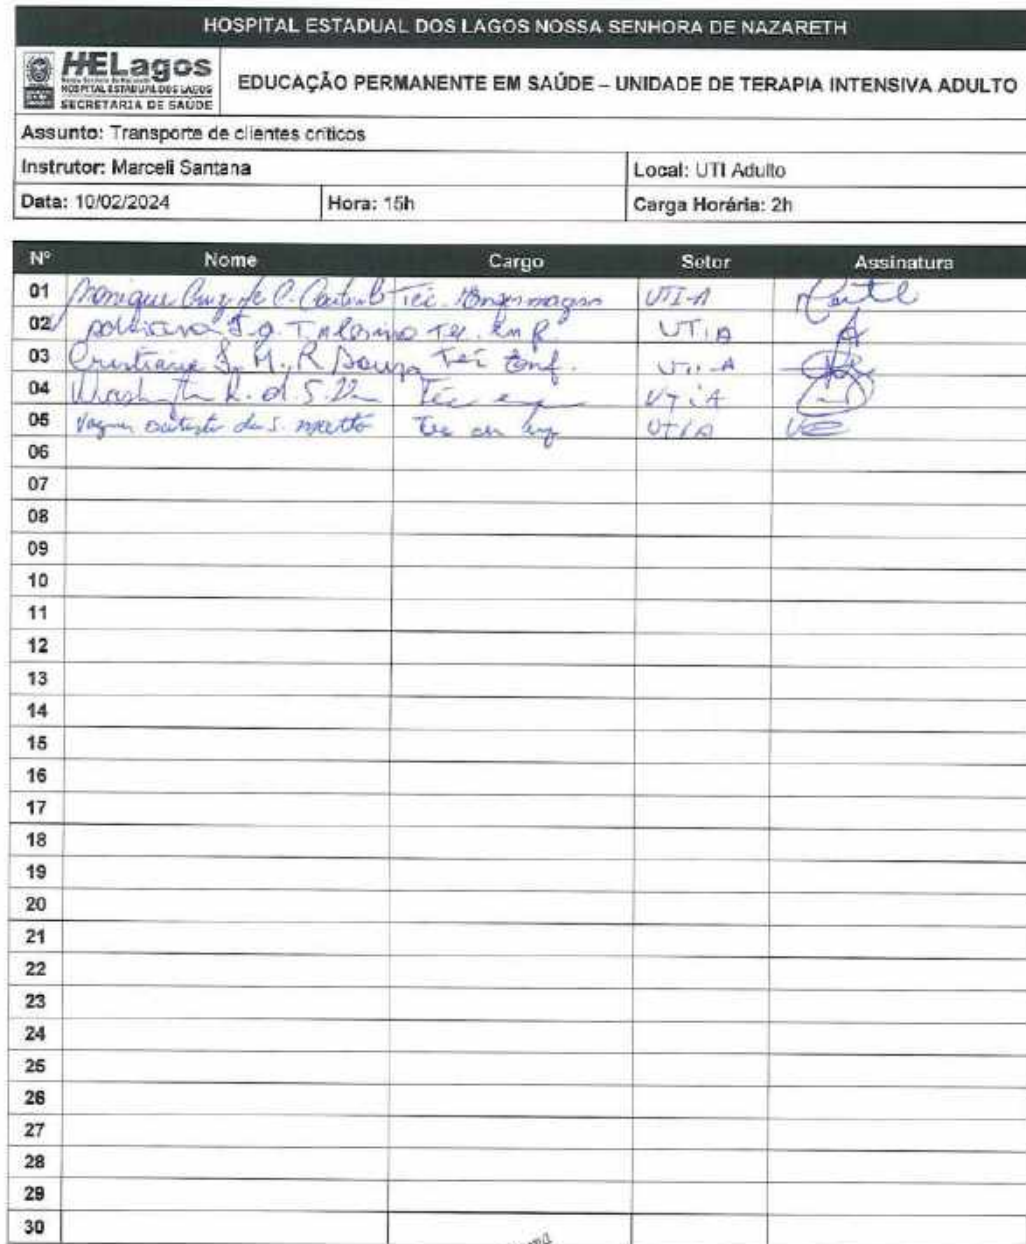 HOSPITAL ESTADUAL DOS LAGOS NOSSA SENHORA DE NAZARETH
HELagos
HOSPITAL ESTADUAL DOS LAGOS
SECRETARIA DE SAÚDE
EDUCAÇÃO PERMANENTE EM SAÚDE – UNIDADE DE TERAPIA INTENSIVA ADULTO
Assunto: Transporte de clientes críticos
Instrutor: Marceli Santana Local: UTI Adulto
Data: 10/02/2024 Hora: 15h Carga Horária: 2h
Nº Nome Cargo Setor Assinatura
01 Monique Cruz de C. Téc. Enfermagem UTI-A
02 UTI A
03 Cristiane S. M. R Souza Téc Enf. UTI-A
04 Téc UTI A
05 Vagner da S. Tec en enf UTI A
06
07
08
09
10
11
12
13
14
15
16
17
18
19
20
21
22
23
24
25
26
27
28
29
30